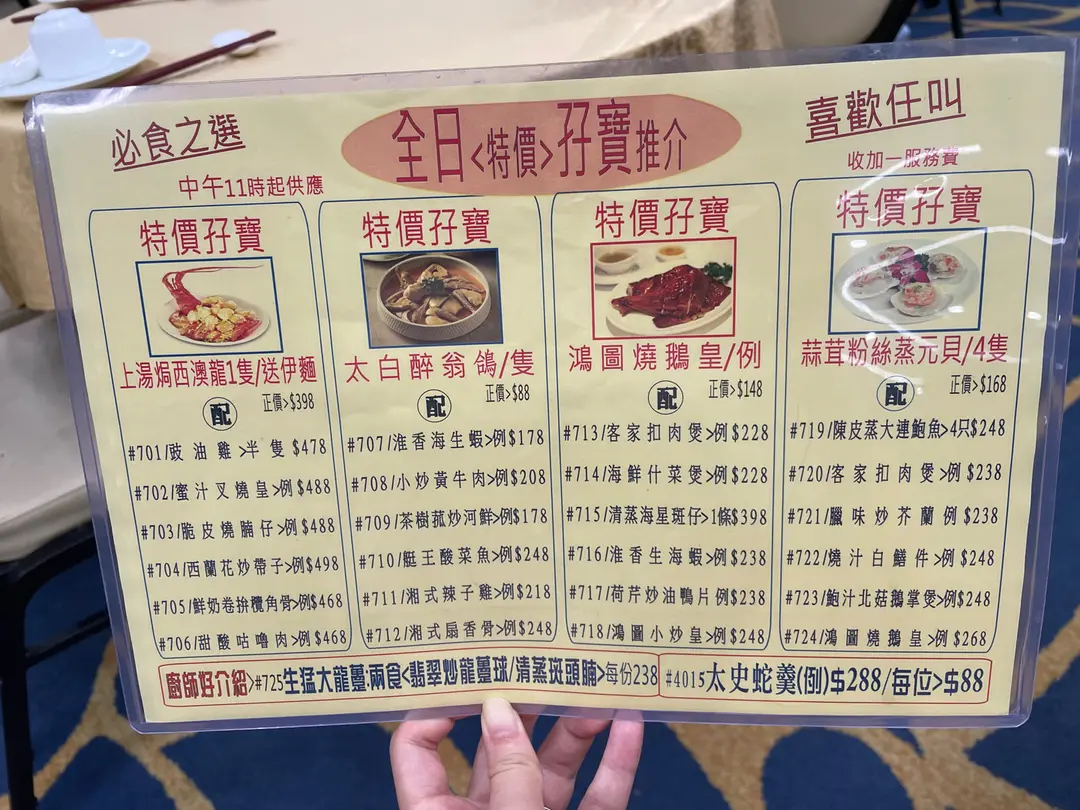 必食之選
全日<特價>孖寶推介
喜歡任叫
中午11時起供應
收加一服務費
特價孖寶
上湯焗西澳龍1隻/送伊麵
配 正價>$398
#701/豉油雞>半隻$478
#702/蜜汁叉燒皇>例$488
#703/脆皮燒腩仔>例$488
#704/西蘭花炒帶子>例$498
#705/鮮奶卷拚欖角骨>例$468
#706/甜酸咕嚕肉>例$468
特價孖寶
太白醉翁鴿/隻
配 正價>$88
#707/淮香海生蝦>例$178
#708/小炒黃牛肉>例$208
#709/茶樹菰炒河鮮>例$178
#710/艇王酸菜魚>例$248
#711/湘式辣子雞>例$218
#712/湘式扇香骨>例$248
特價孖寶
鴻圖燒鵝皇/例
配 正價>$148
#713/客家扣肉煲>例$228
#714/海鮮什菜煲>例$228
#715/清蒸海星斑仔>1條$398
#716/淮香生海蝦>例$238
#717/荷芹炒油鴨片例$238
#718/鴻圖小炒皇>例$248
特價孖寶
蒜茸粉絲蒸元貝/4隻
配 正價>$168
#719/陳皮蒸大連鮑魚>4只$248
#720/客家扣肉煲>例$238
#721/臘味炒芥蘭例$238
#722/燒汁白鱔件>例$248
#723/鮑汁北菇鵝掌煲>例$248
#724/鴻圖燒鵝皇>例$268
廚師好介紹>#725生猛大龍躉·兩食<翡翠炒龍躉球/清蒸斑頭腩>每份238
#4015太史蛇羹(例)$288/每位>$88